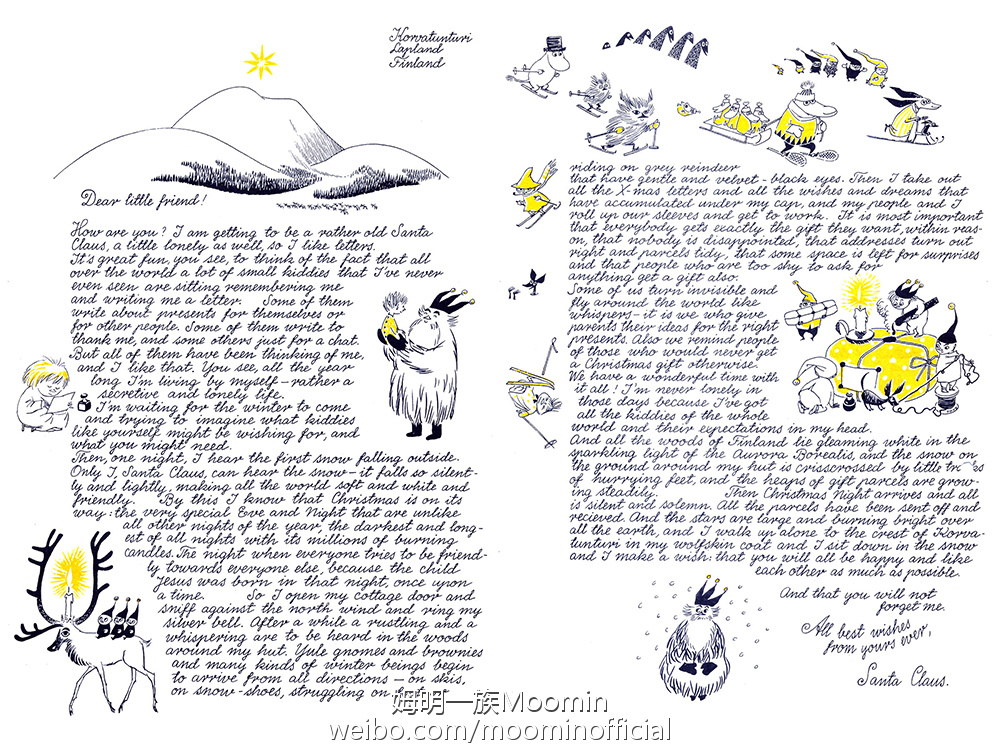 Korvatunturi
Lapland
Finland
Dear little friend!
How are you? I am getting to be a rather old Santa
Claus, a little lonely as well, so I like letters.
It's great fun, you see, to think of the fact that all
over the world a lot of small kiddies that I've never
even seen are sitting remembering me
and writing me a letter. Some of them
write about presents for themselves or
for other people. Some of them write to
thank me, and some others just for a chat.
But all of them have been thinking of me,
and I like that. You see, all the year
long I'm living by myself - rather a
secretive and lonely life.
I'm waiting for the winter to come
and trying to imagine what kiddies
like yourself might be wishing for, and
what you might need.
Then, one night, I hear the first snow falling outside.
Only I, Santa Claus, can hear the snow - it falls so silent-
ly and lightly, making all the world soft and white and
friendly. By this I know that Christmas is on its
way: the very special Eve and Night that are unlike
all other nights of the year, the darkest and long-
est of all nights with its millions of burning
candles. The night when everyone tries to be friend-
ly towards everyone else, because the child
Jesus was born in that night, once upon
a time. So I open my cottage door and
sniff against the north wind and ring my
silver bell. After a while a rustling and a
whispering are to be heard in the woods
around my hut. Yule gnomes and brownies
and many kinds of winter beings begin
to arrive from all directions - on skis,
on snow-shoes, struggling on
riding on grey reindeer
that have gentle and velvet-black eyes. Then I take out
all the X-mas letters and all the wishes and dreams that
have accumulated under my cap, and my people and I
roll up our sleeves and get to work. It is most important
that everybody gets exactly the gift they want, within reas-
on, that nobody is disappointed, that addresses turn out
right and parcels tidy, that some space is left for surprises
and that people who are too shy to ask for
anything get a gift also.
Some of us turn invisible and
fly around the world like
whispers - it is we who give
parents their ideas for the right
presents. Also we remind people
of those who would never get
a Christmas gift otherwise.
We have a wonderful time with
it all! I'm never lonely in
those days because I've got
all the kiddies of the whole
world and their expectations in my head.
And all the woods of Finland lie gleaming white in the
sparkling light of the Aurora Borealis, and the snow on
the ground around my hut is crisscrossed by little
of hurrying feet, and the heaps of gift parcels are grow-
ing steadily. Then Christmas Night arrives and all
is silent and solemn. All the parcels have been sent off and
recieved. And the stars are large and burning bright over
all the earth, and I walk up alone to the crest of Korva-
tunturi in my wolfskin coat and I sit down in the snow
and I make a wish: that you will all be happy and like
each other as much as possible.
And that you will not
forget me.
All best wishes
from yours ever,
Santa Claus.
姆明一族Moomin
weibo.com/moominofficial